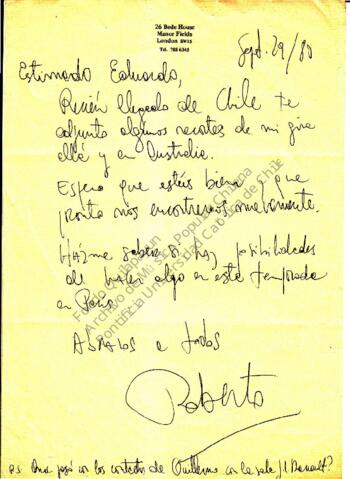 26 Bede House
Manor Fields
London SW15
Tel. 788 6345
Sept. 29/80
Estimado Eduardo,
Recién llegado de Chile te
adjunto algunos recortes de mi gira
allá y en Australia.
Espero que estéis bien y que
pronto nos encontremos nuevamente.
Házme saber si hay posibilidades
de hacer algo en esta temporada
en París.
Abrazos a todos
Roberto
P.S. Que pasó con los contactos de Guillermo con la sala
Archivo de Música Popular Chilena
Pontificia Universidad Católica de Chile